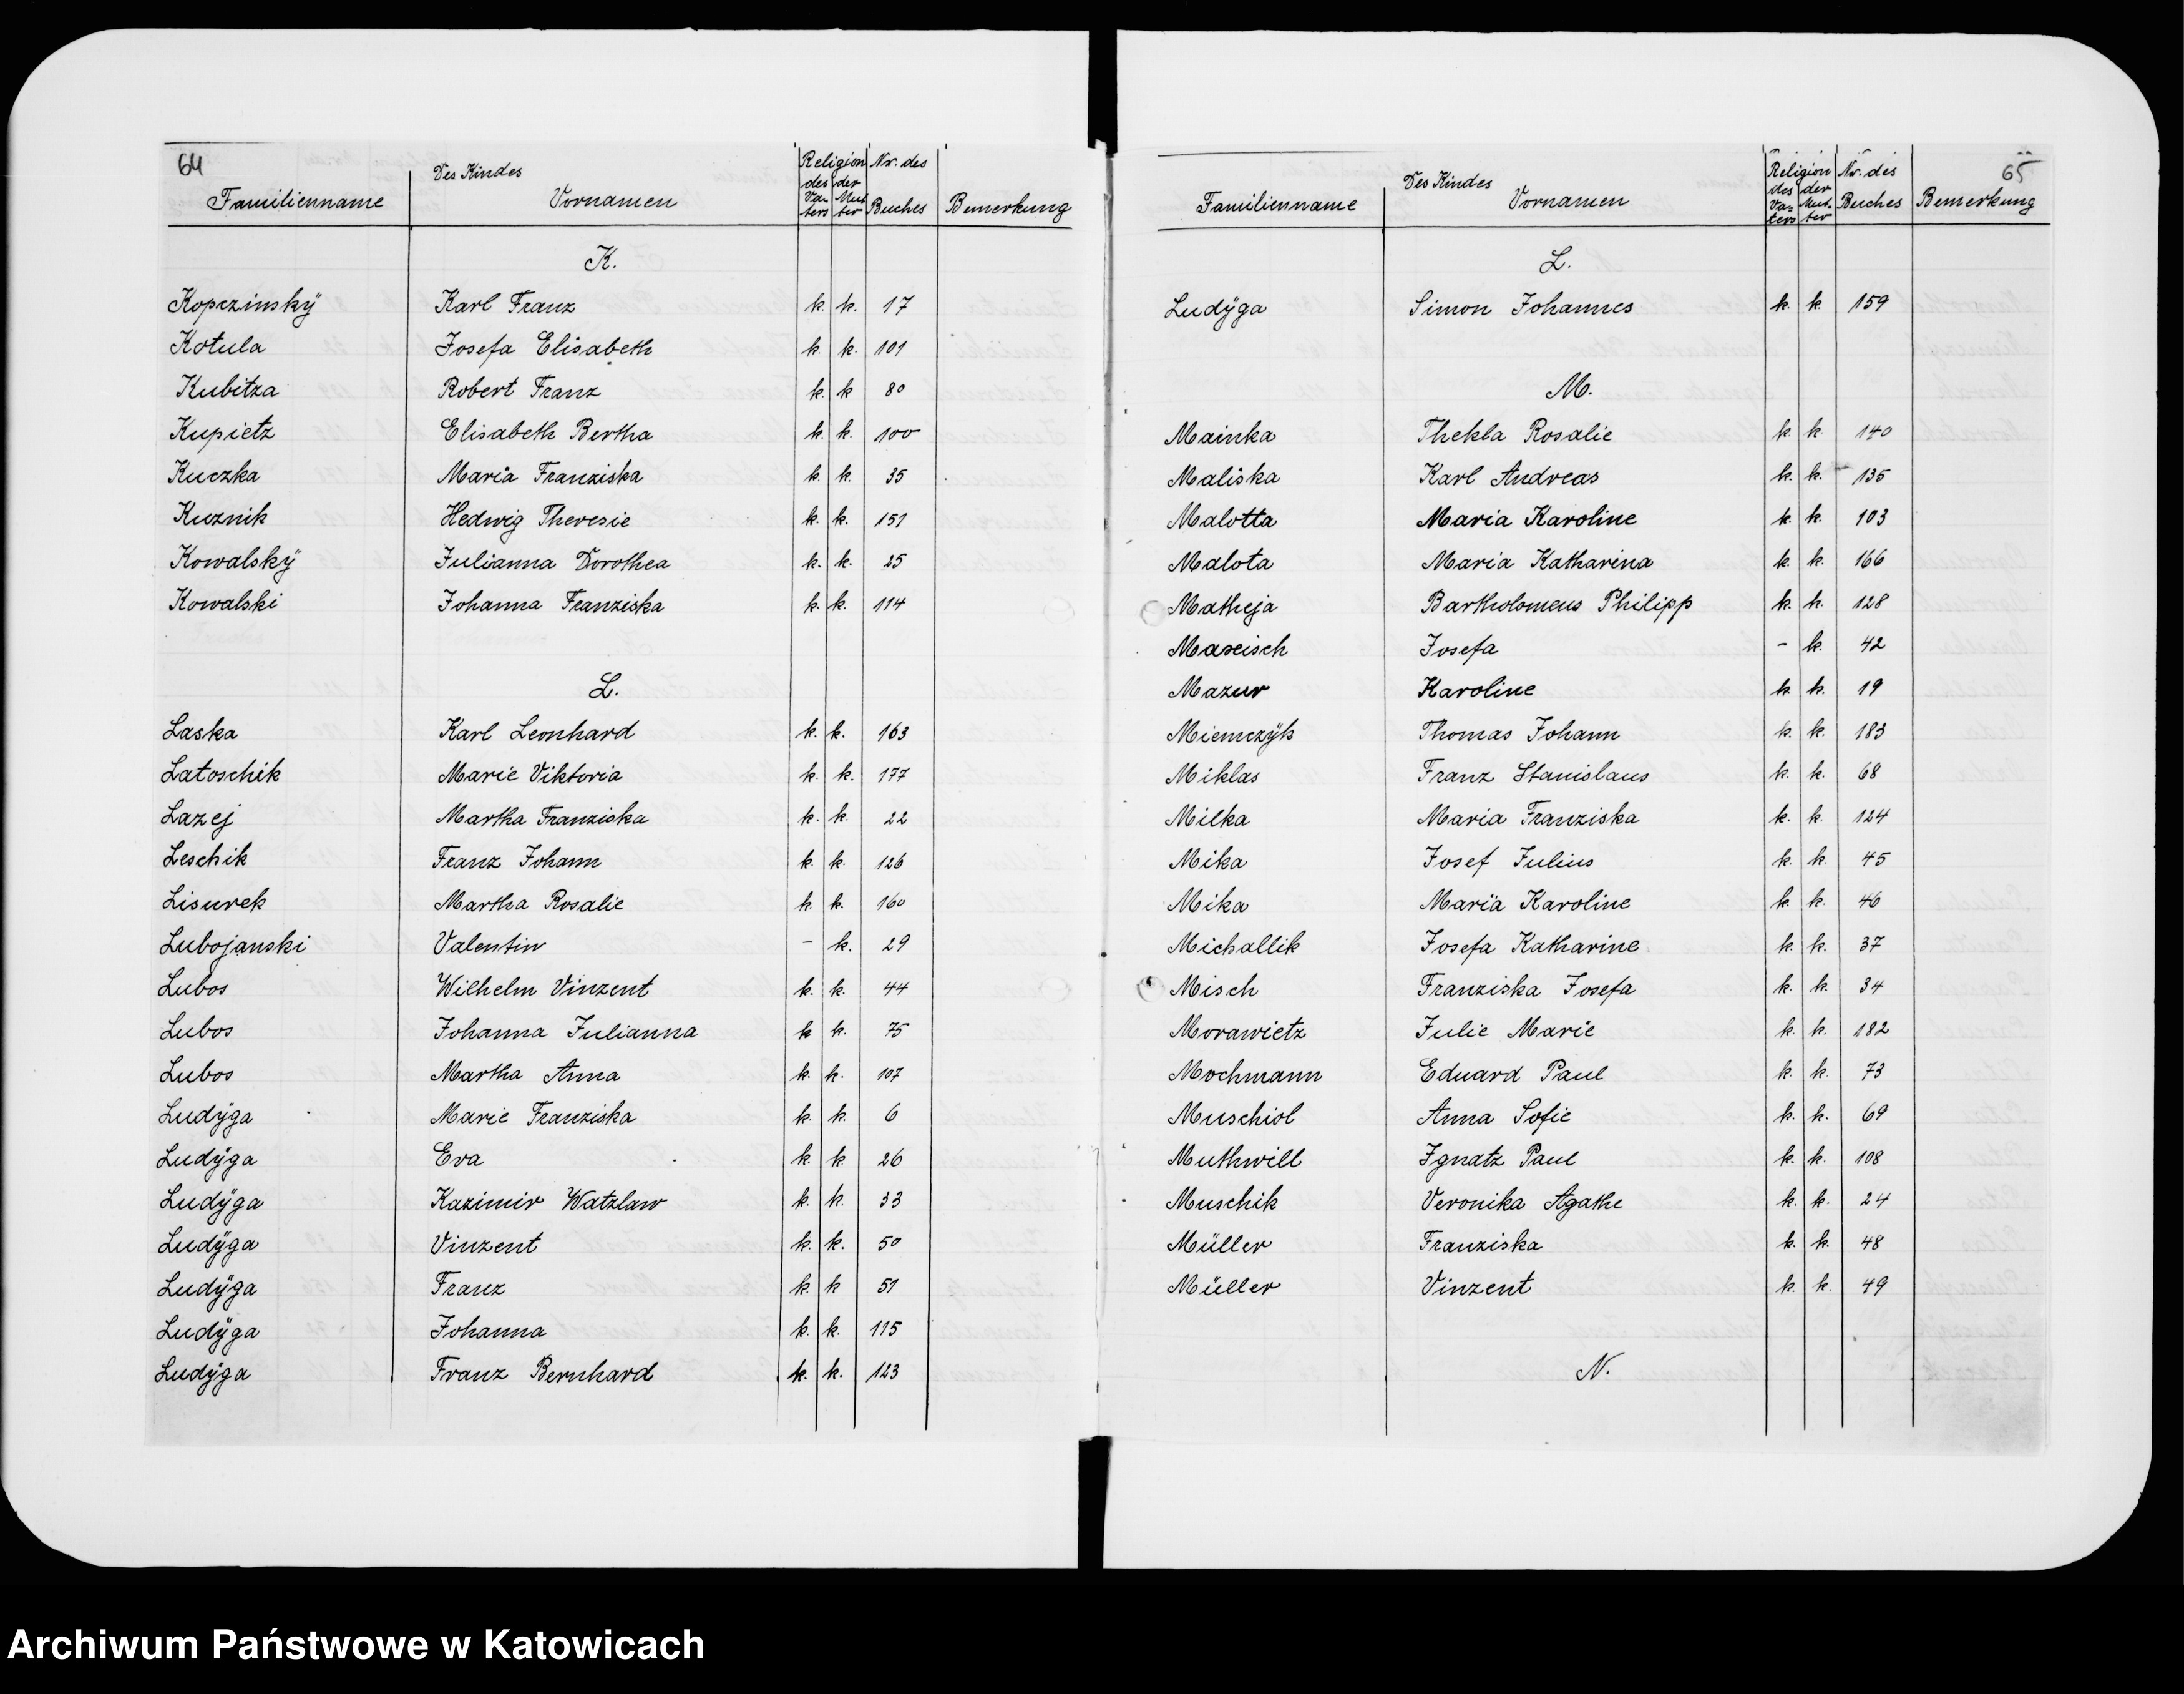 64
Des Kindes Religion Nr. des
des Vaters der Mutter
Familienname Vornamen Buches Bemerkung
K.
Kopczinskÿ Karl Franz k. k. 17
Kotula Josefa Elisabeth k. k. 101
Kubitza Robert Franz k. k 80
Kupietz Elisabeth Bertha k. k. 100
Kuczka Maria Franziska k. k. 35
Kuznik Hedwig Theresie k. k. 151
Kowalskÿ Julianna Dorothea k. k. 25
Kowalski Johanna Franziska k. k. 114
L.
Laska Karl Leonhard k. k. 163
Latoschik Marie Viktoria k. k. 177
Lazej Martha Franziska k. k. 22
Leschik Franz Johann k. k. 126
Lisurek Martha Rosalie k k. 160
Lubojanski Valentin - k. 29
Lubos Wilhelm Vinzent k. k. 44
Lubos Johanna Julianna k k. 75
Lubos Martha Anna k. k. 107
Ludÿga Marie Franziska k. k. 6
Ludÿga Eva k. k. 26
Ludÿga Kazimir Watzlaw k. k. 33
Ludÿga Vinzent k. k. 50
Ludÿga Franz k. k 51
Ludÿga Johanna k. k. 115
Ludÿga Franz Bernhard k. k. 123
65
Des Kindes Religion Nr. des
des Vaters der Mutter
Familienname Vornamen Buches Bemerkung
L.
Ludÿga Simon Johannes k. k. 159
M.
Mainka Thekla Rosalie k k. 140
Maliska Karl Andreas k. k. 135
Malotta Maria Karoline k. k. 103
Malota Maria Katharina k. k. 166
Matheja Bartholomeus Philipp k. k. 128
Josefa - k. 42
Mazur Karoline k k. 19
Miemczÿk Thomas Johann k. k. 183
Miklas Franz Stanislaus k. k. 68
Milka Maria Franziska k. k. 124
Mika Josef Julius k. k. 45
Mika Maria Karoline k. k. 46
Michallik Josefa Katharine k. k. 37
Misch Franziska Josefa k. k. 34
Morawietz Julie Marie k. k. 182
Mochmann Eduard Paul k. k. 73
Muschiol Anna Sofie k. k. 69
Muthwill Ignatz Paul k. k. 108
Muschik Veronika Agathe k. k. 24
Müller Franziska k. k. 48
Müller Vinzent k. k. 49
N.
Archiwum Państwowe w Katowicach